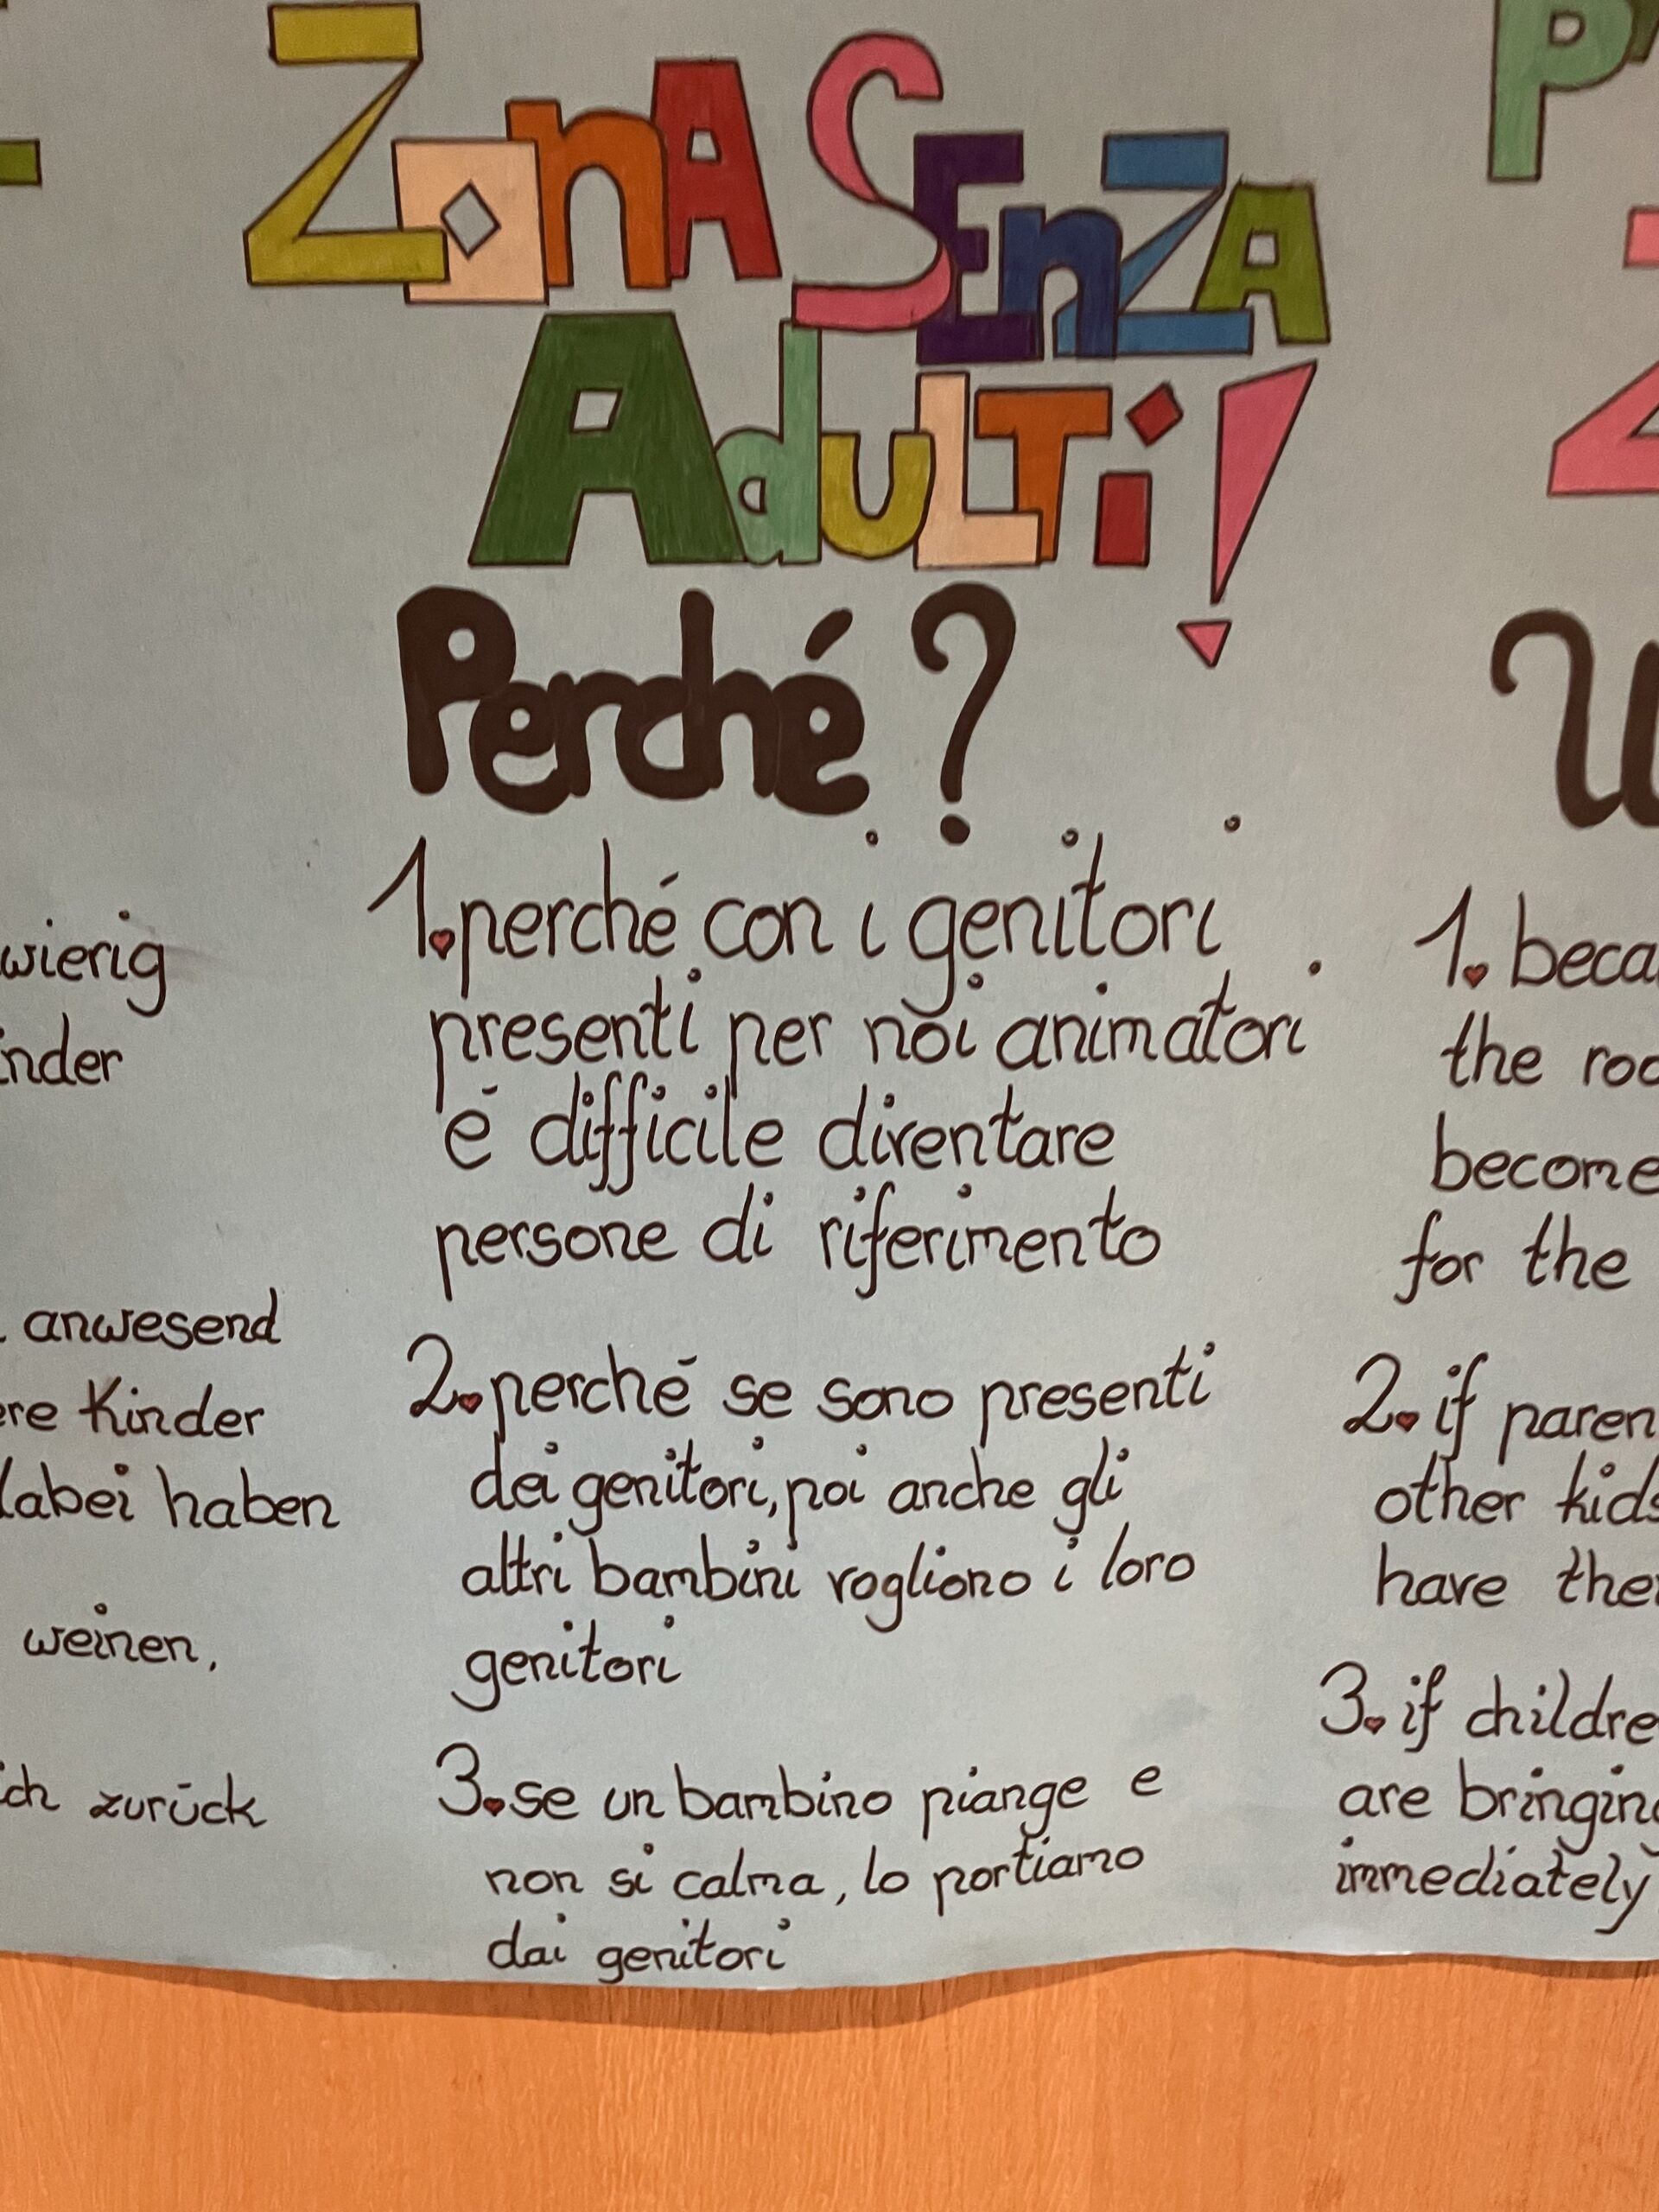 ZonA SEnZA
AdulTi!
Perché?
1. perché con i genitori
presenti per noi animatori
é difficile diventare
persone di riferimento
2. perché se sono presenti
dei genitori, poi anche gli
altri bambini vogliono i loro
genitori
3. se un bambino piange e
non si calma, lo portiamo
dai genitori
wierig
inder
anwesend
ere Kinder
dabei haben
weinen,
ich zurück
1. beca
the roo
become
for the
2. if paren
other kids
have thei
3. if childre
are bringing
immediately